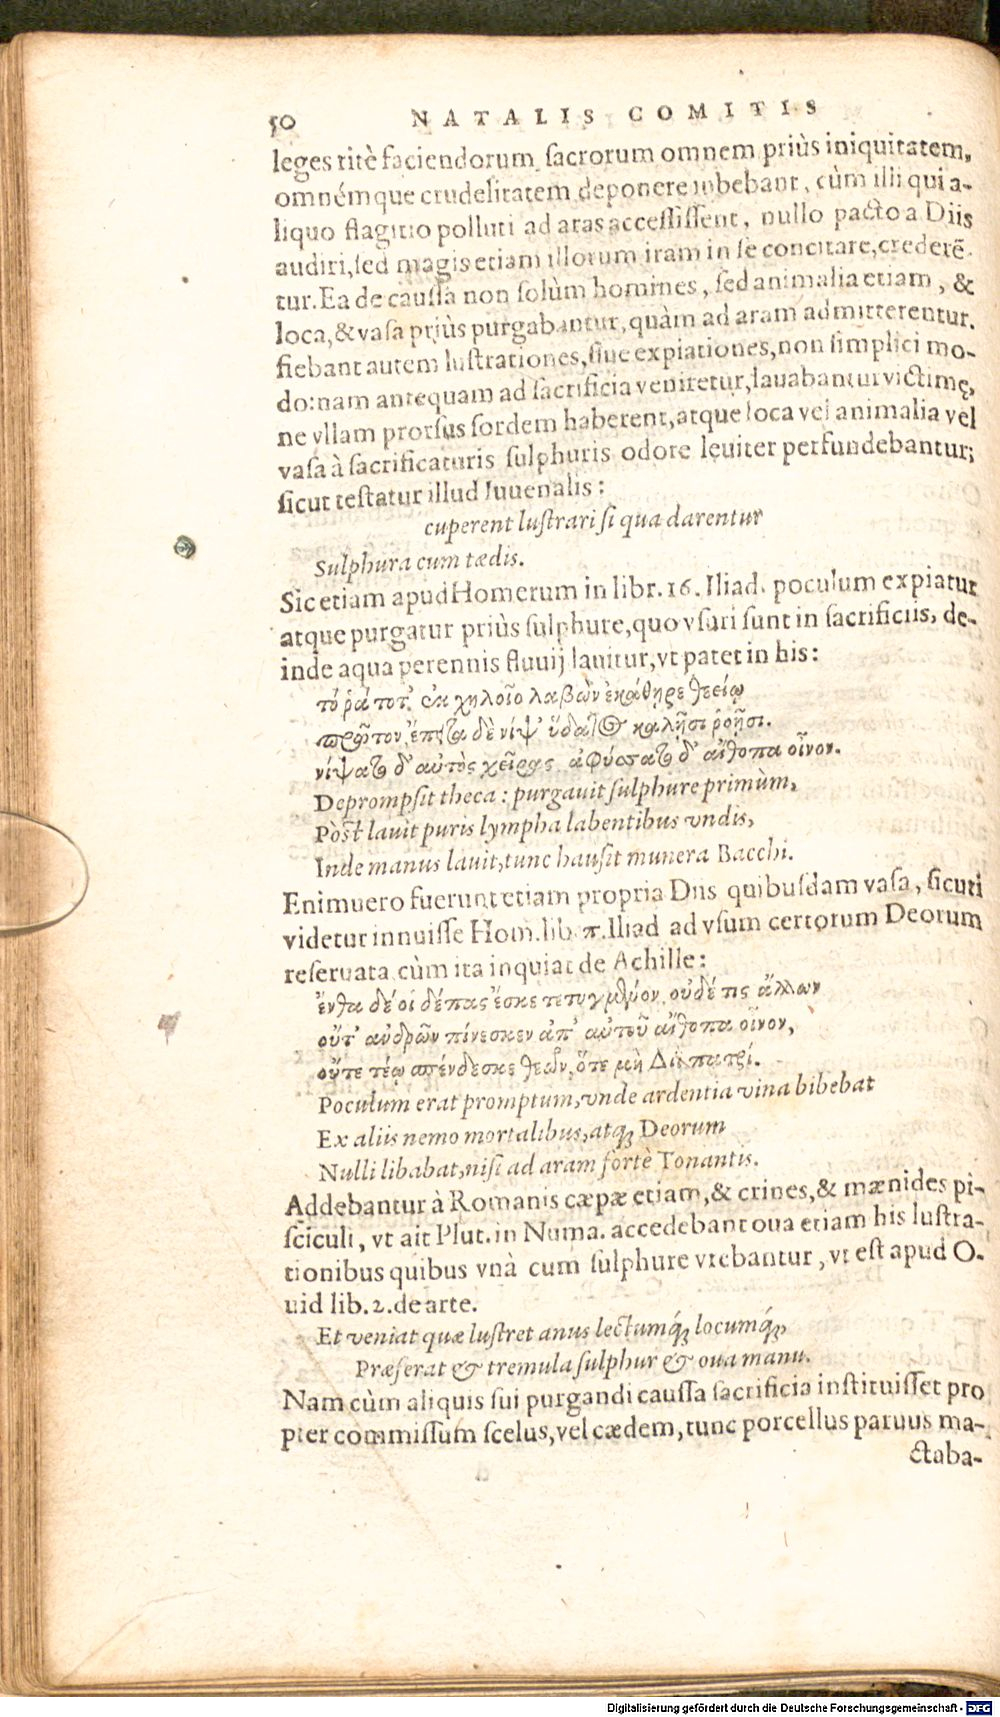 50 NATALIS COMITIS
leges ritè faciendorum sacrorum omnem priùs iniquitatem,
omnémque crudelitatem deponere iubebant, cùm illi qui a-
liquo flagitio polluti ad aras accessissent, nullo pacto a Diis
audiri, sed magis etiam illorum iram in se concitare, crederē-
tur. Ea de caussa non solùm homines, sed animalia etiam, &
loca, & vasa priùs purgabantur, quàm ad aram admitterentur.
fiebant autem lustrationes, siue expiationes, non simplici mo-
do: nam antequam ad sacrificia veniretur, lauabantur victimę,
ne vllam prorsus sordem haberent, atque loca vel animalia vel
vasa à sacrificaturis sulphuris odore leuiter perfundebantur;
sicut testatur illud Iuuenalis:
cuperent lustrari si qua darentur
Sulphura cum tædis.
Sic etiam apud Homerum in libr. 16. Iliad. poculum expiatur
atque purgatur priùs sulphure, quo vsuri sunt in sacrificiis, de-
inde aqua perennis fluuij lauitur, vt patet in his:
τό ῥά τοτ' ἐκ χηλοῖο λαβὼν ἐκάθηρε θεείῳ
πρῶτον, ἔπειτα δὲ νίψ' ὕδατος καλῇσι ῥοῇσι.
νίψατο δ' αὐτὸς χεῖρας, ἀφύσατο δ' αἴθοπα οἶνον.
Deprompsit theca: purgauit sulphure primùm,
Pòst lauit puris lympha labentibus vndis,
Inde manus lauit, tunc hausit munera Bacchi.
Enimuero fuerunt etiam propria Diis quibusdam vasa, sicuti
videtur innuisse Hom. lib. π. Iliad ad vsum certorum Deorum
reseruata cùm ita inquiat de Achille:
ἔνθα δέ οἱ δέπας ἔσκε τετυγμένον, οὐδέ τις ἄλλων
οὔτ' ἀνδρῶν πίνεσκεν ἀπ' αὐτοῦ αἴθοπα οἶνον,
οὔτε τέῳ σπένδεσκε θεῶν, ὅτε μὴ Διῒ πατρί.
Poculum erat promptum, vnde ardentia vina bibebat
Ex aliis nemo mortalibus, atq; Deorum
Nulli libabat, nisi ad aram fortè Tonantis.
Addebantur à Romanis cæpæ etiam, & crines, & mænides pi-
sciculi, vt ait Plut. in Numa. accedebant oua etiam his lustra-
tionibus quibus vnà cum sulphure vtebantur, vt est apud O-
uid lib. 2. de arte.
Et veniat quæ lustret anus lectumq́; locumq́;,
Præferat & tremula sulphur & oua manu.
Nam cùm aliquis sui purgandi caussa sacrificia instituisset pro
pter commissum scelus, vel cædem, tunc porcellus paruus ma-
ctaba-
Digitalisierung gefördert durch die Deutsche Forschungsgemeinschaft - DFG